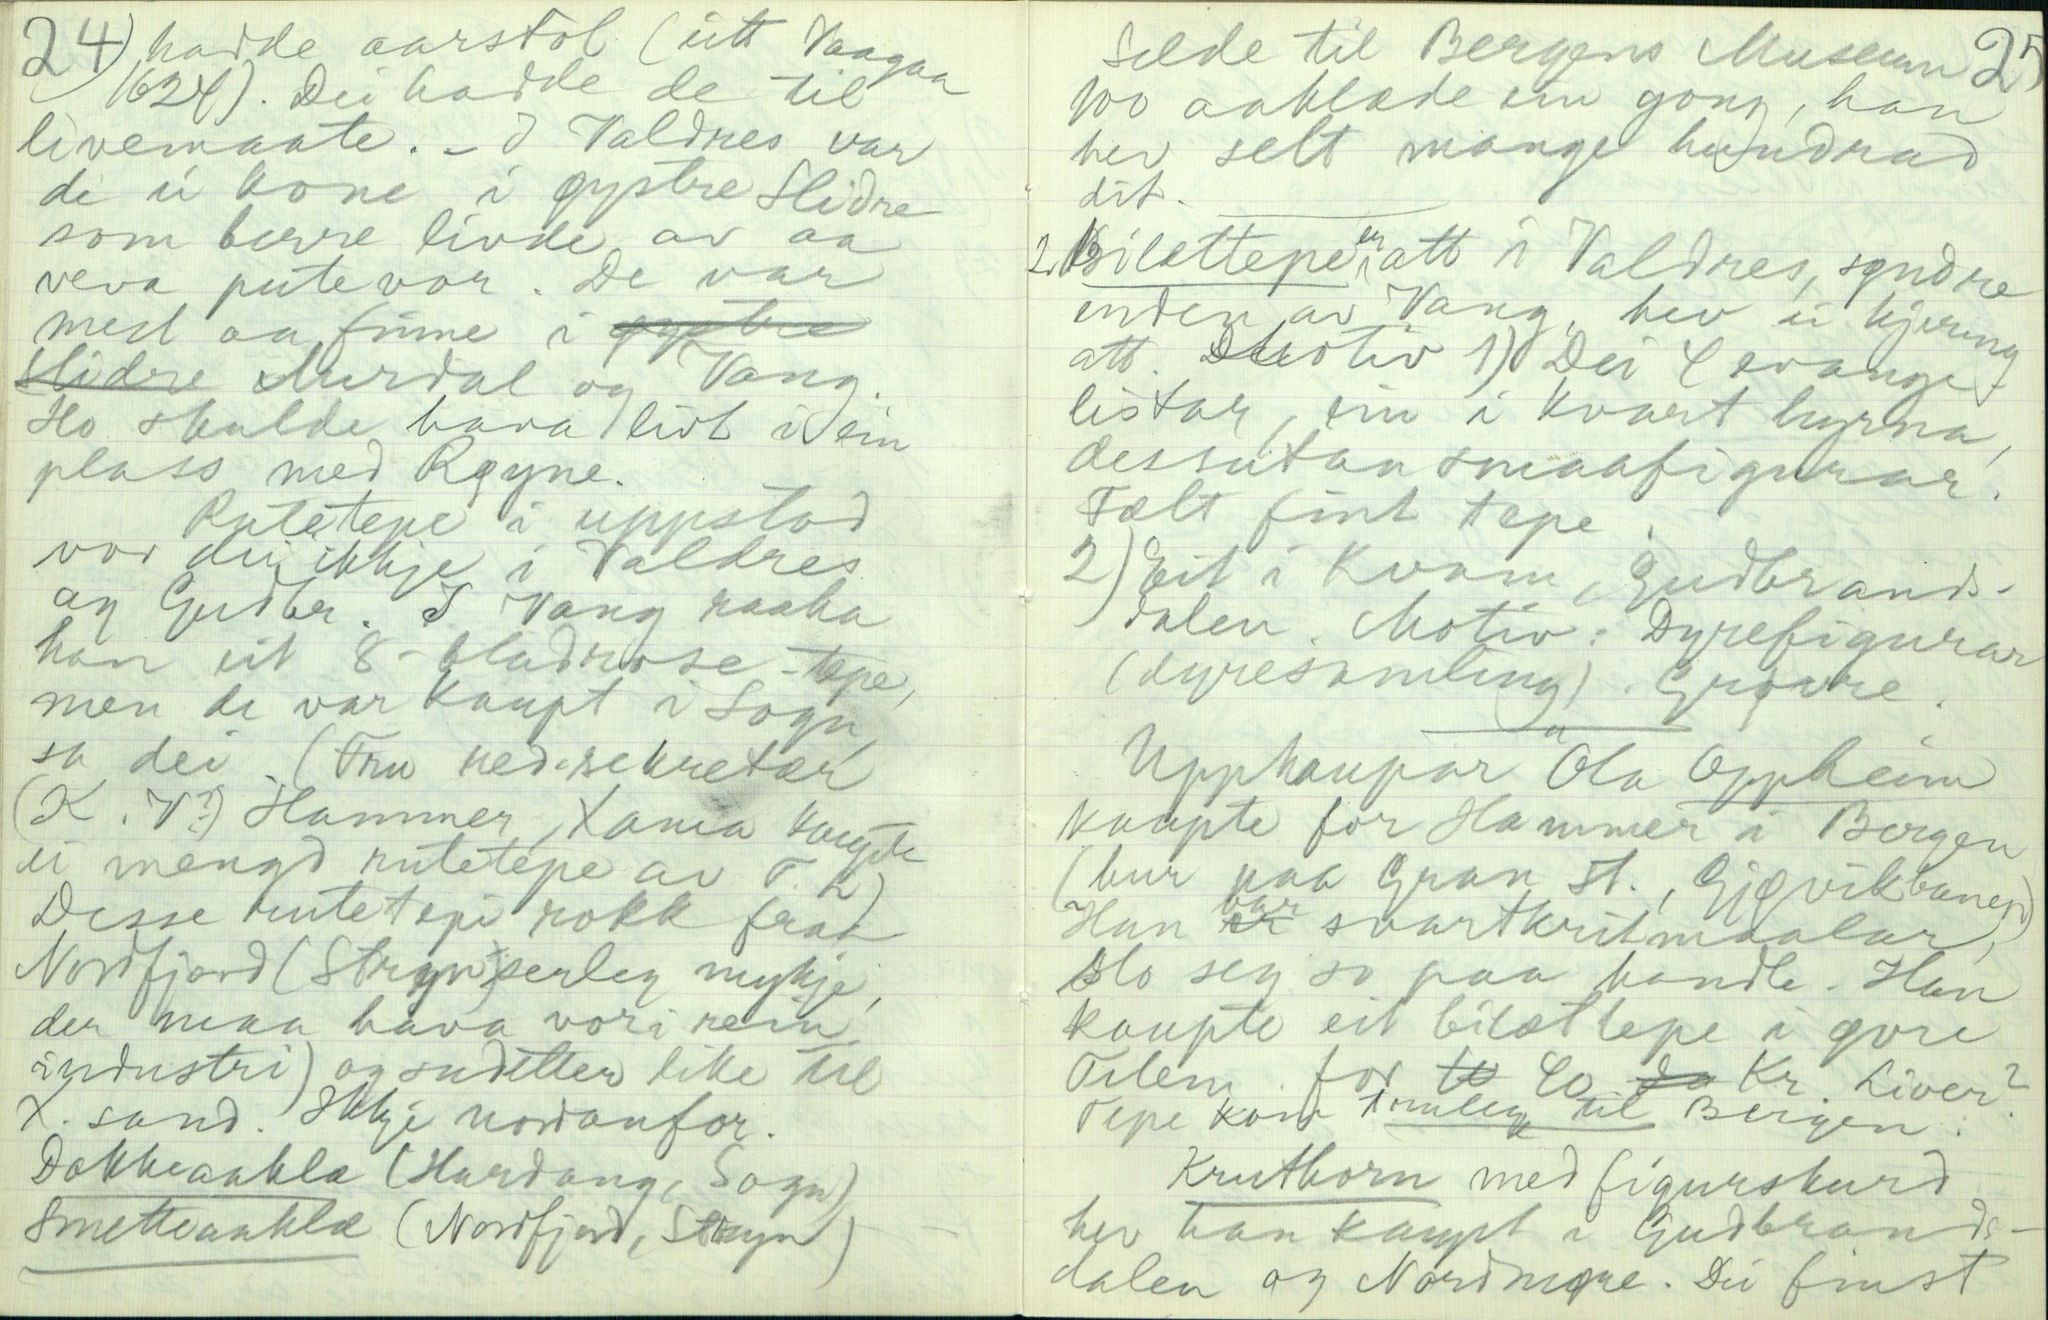 24) hadde aarstol (eitt Vaagaa
1624). Dei hadde de til
livemaate. – I Valdres var
di ei kone i øystre Slidre
som berre livde av aa
veva putevor. De var
mest aa finne i øystre
Slidre Aurdal og Vang.
Ho skulde hava livt i ein
plass med Røyne.
Rutetepe i uppstad
var dei ikkje i Valdres
og Gudbr. I Vang raaka
han eit 8-bladrose-tepe,
men de var kaupt i Sogn
sa dei. (Fru red.sekretær
(K. V?) Hammer, Xania kaupte
ei mengd rutetepe av T. L)
Desse rutetepi rokk fraa
Nordfjord (Stryn serleg mykje,
der maa hava vori rein
industri) og sudetter like til
X.sand. Ikkje nordanfor.
Dokkeaakla (Hardang, Sogn)
Smetteaaklæ (Nordfjord, Stryn)
Selde til Bergens Museum 25
100 aaklæde ein gong, han
hev selt mange hundrad
dit.
2. Bilættepe er att i Valdres, søndre
enden av Vang, hev ei kjering
att. Motiv 1) Dei 4 evange-
listar, ein i kvart hyrna,
dessutan smaafigurar.
Fælt fint tepe.
2) Eit i Kvam, Gudbrands-
dalen. Motiv: Dyrefigurar
(dyresamling). Grovre.
Uppkaupar Ola Oppheim
kaupte for Hammer i Bergen
(bur paa Gran St., Gjøvikbanen)
Han er var svartkritmaalar,
slo seg so paa handle. Han
kaupte eit bilættepe i øvre
Tilem. for to 40 da Kr. Liver?
Tepe kom truleg til Bergen.
Kruthorn med figurskurd
hev han kaupt i Gudbrands-
dalen og Nordmøre. Dei finst